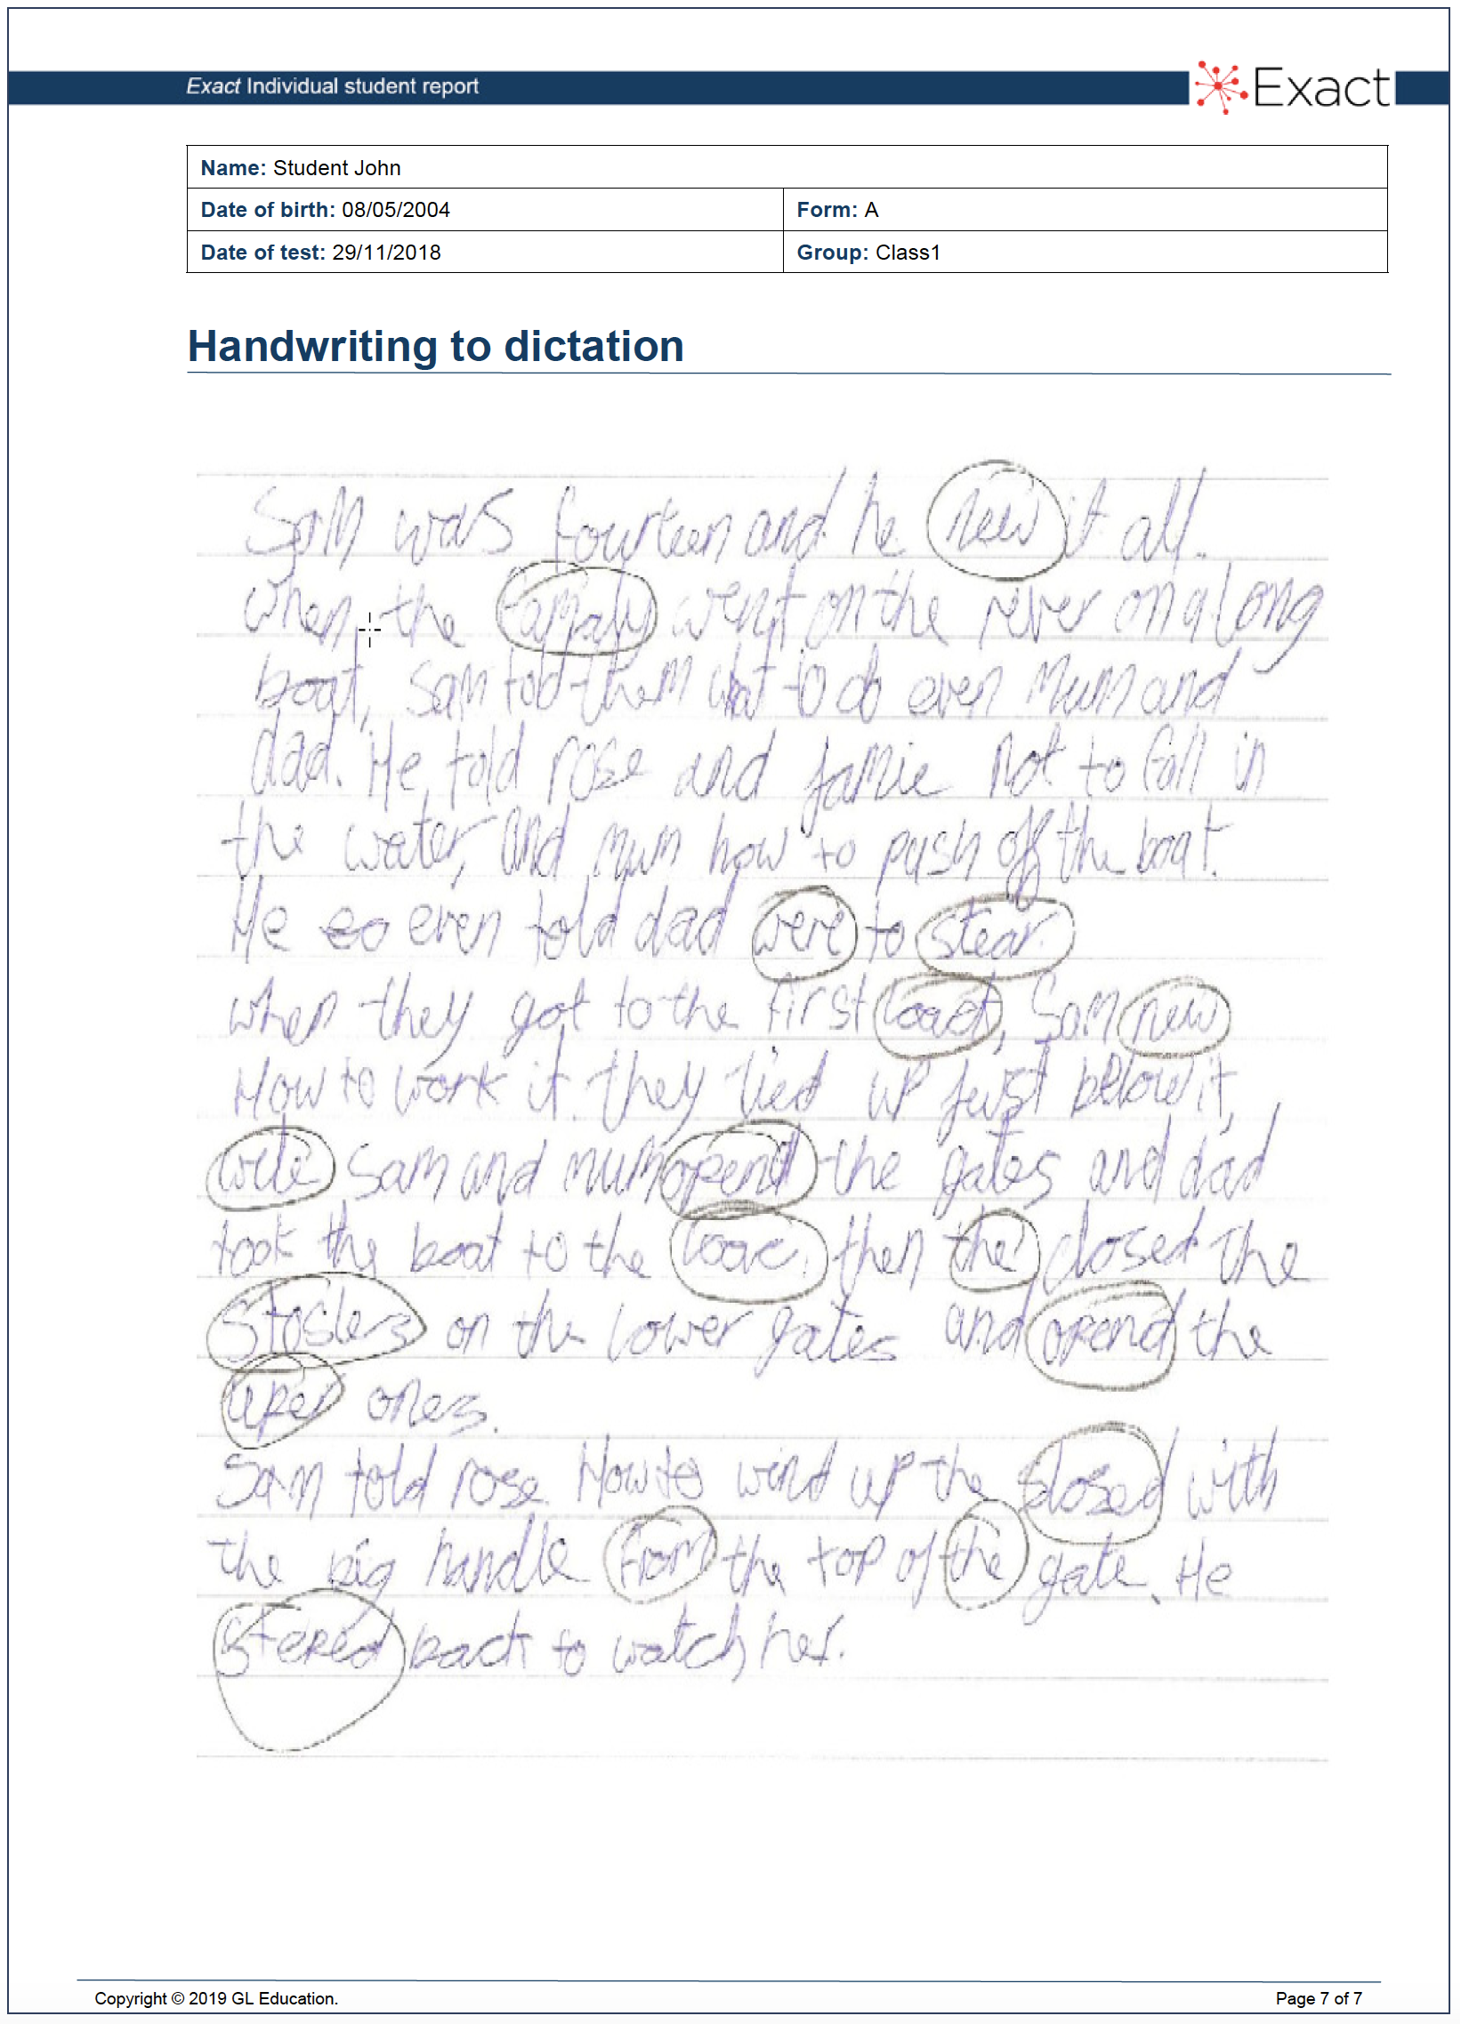 Exact Individual student report
Exact
Name: Student John
Date of birth: 08/05/2004 Form: A
Date of test: 29/11/2018 Group: Class1
Handwriting to dictation
Sam was fourteen and he new it all.
when the famaly went on the river on a long
boat, Sam told them what to do even Mum and
dad. He told rose and jamie Not to fall in
the water, and mum how to push off the boat.
He even told dad were to stear.
when they got to the first Sam new
How to work it. they tied up just below it,
Sam and mum opend the gates and dad
took the boat to the then the closed the
on the lower gates and opend the
uper ones.
Sam told rose How to wind up the closed with
the big handle from the top of the gate. He
steped back to watch her.
Copyright © 2019 GL Education. Page 7 of 7